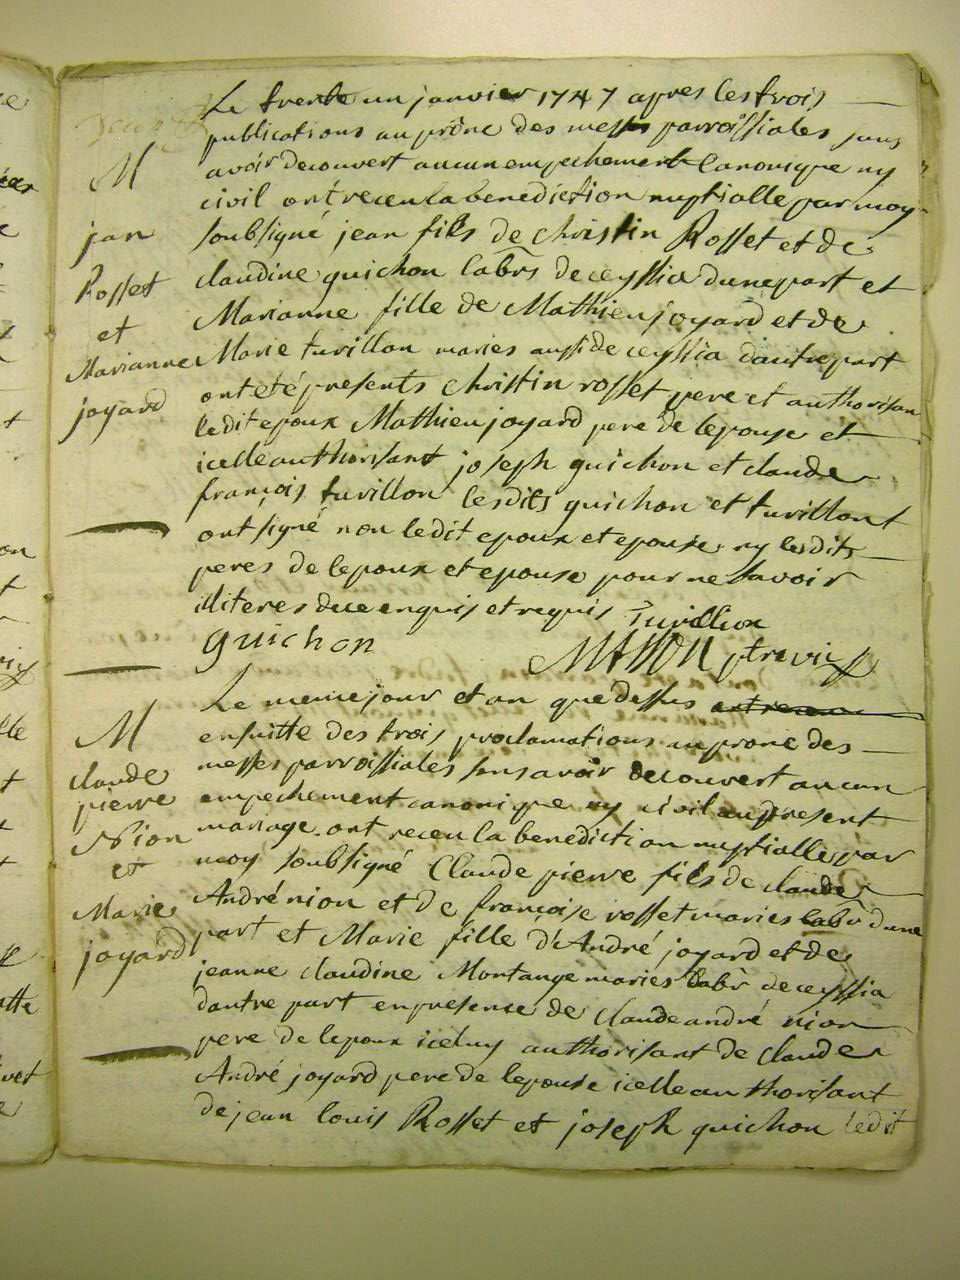 Le trente un janvier 1747 apres les trois
publications au prône des messes parroissiales sans
avoir decouvert aucun empechement canonique ny
civil ont receu la benediction nuptialle par moy
soubsigné jean fils de christin Rosset et de
claudine guichon labrs de ceyssia dune part et
Marianne fille de Mathieu joyard et de
Marie turillon maries aussi de ceyssia dautre part
ont eté presents christin rosset pere et authorisan
ledit epoux Mathieu joyard pere de lepouse et
icelle authorisant joseph guichon et claude
françois turillon lesdits guichon et turillont
ont signé non ledit epoux et epouse ny lesdits
peres de lepoux et epouse pour ne savoir
illiteres de ce enquis et requis Turillion
guichon MASSON
M
jan
Rosset
et
Marianne
joyard
Le meme jour et an que dessus
ensuitte des trois proclamations au prone des
messes parroissiales sans avoir decouvert aucun
empechement canonique ny civil au present
mariage ont receu la benediction nuptialle par
moy soubsigné Claude pierre fils de claude
André nion et de françoise rosset maries labr dune
part et Marie fille d'André joyard et de
jeanne claudine Montange maries labr de ceyssia
dautre part en presence de claude andré nion
pere de lepoux iceluy authorisant de claude
André joyard pere de lepouse icelle authorisant
de jean louis Rosset et joseph guichon ledit
M
claude
pierre
Nion
et
Marie
joyard